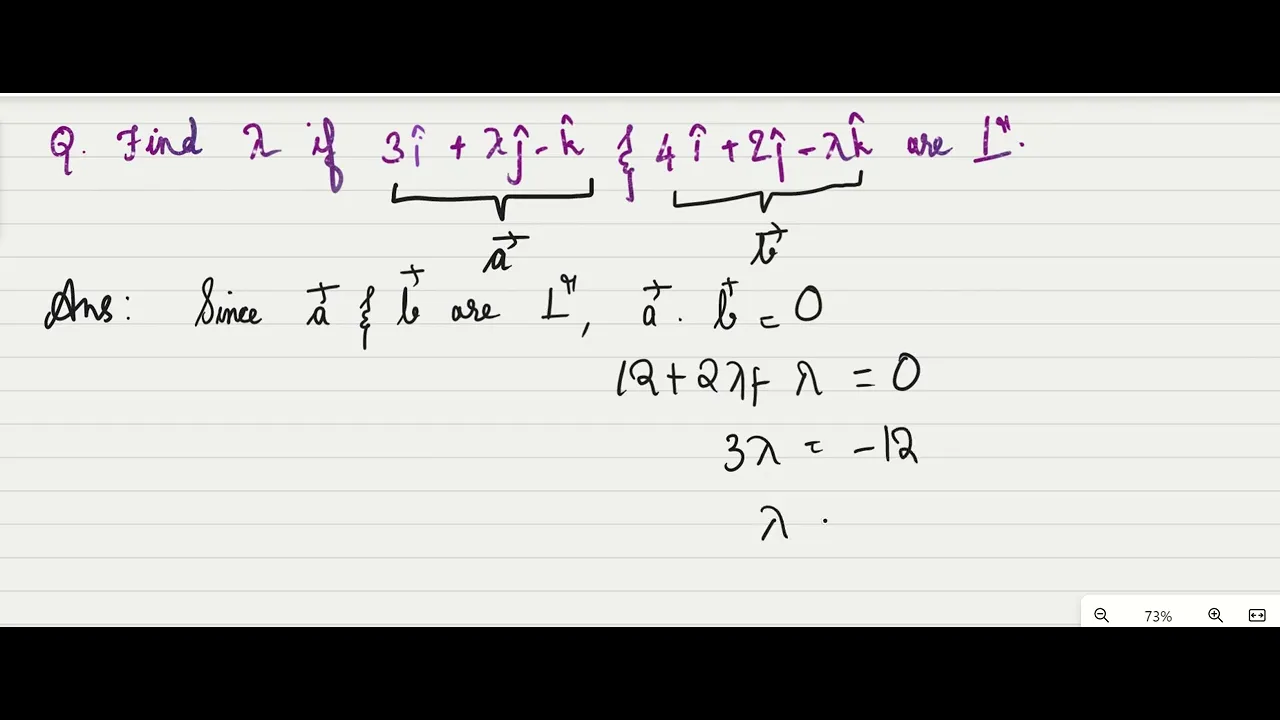 Q. Find λ if 3î + λĵ - k̂ & 4î + 2ĵ - λk̂ are ⊥ʳ.
a⃗ b⃗
Ans: Since a⃗ & b⃗ are ⊥ʳ, a⃗ . b⃗ = 0
12 + 2λ + λ = 0
3λ = -12
λ
73%